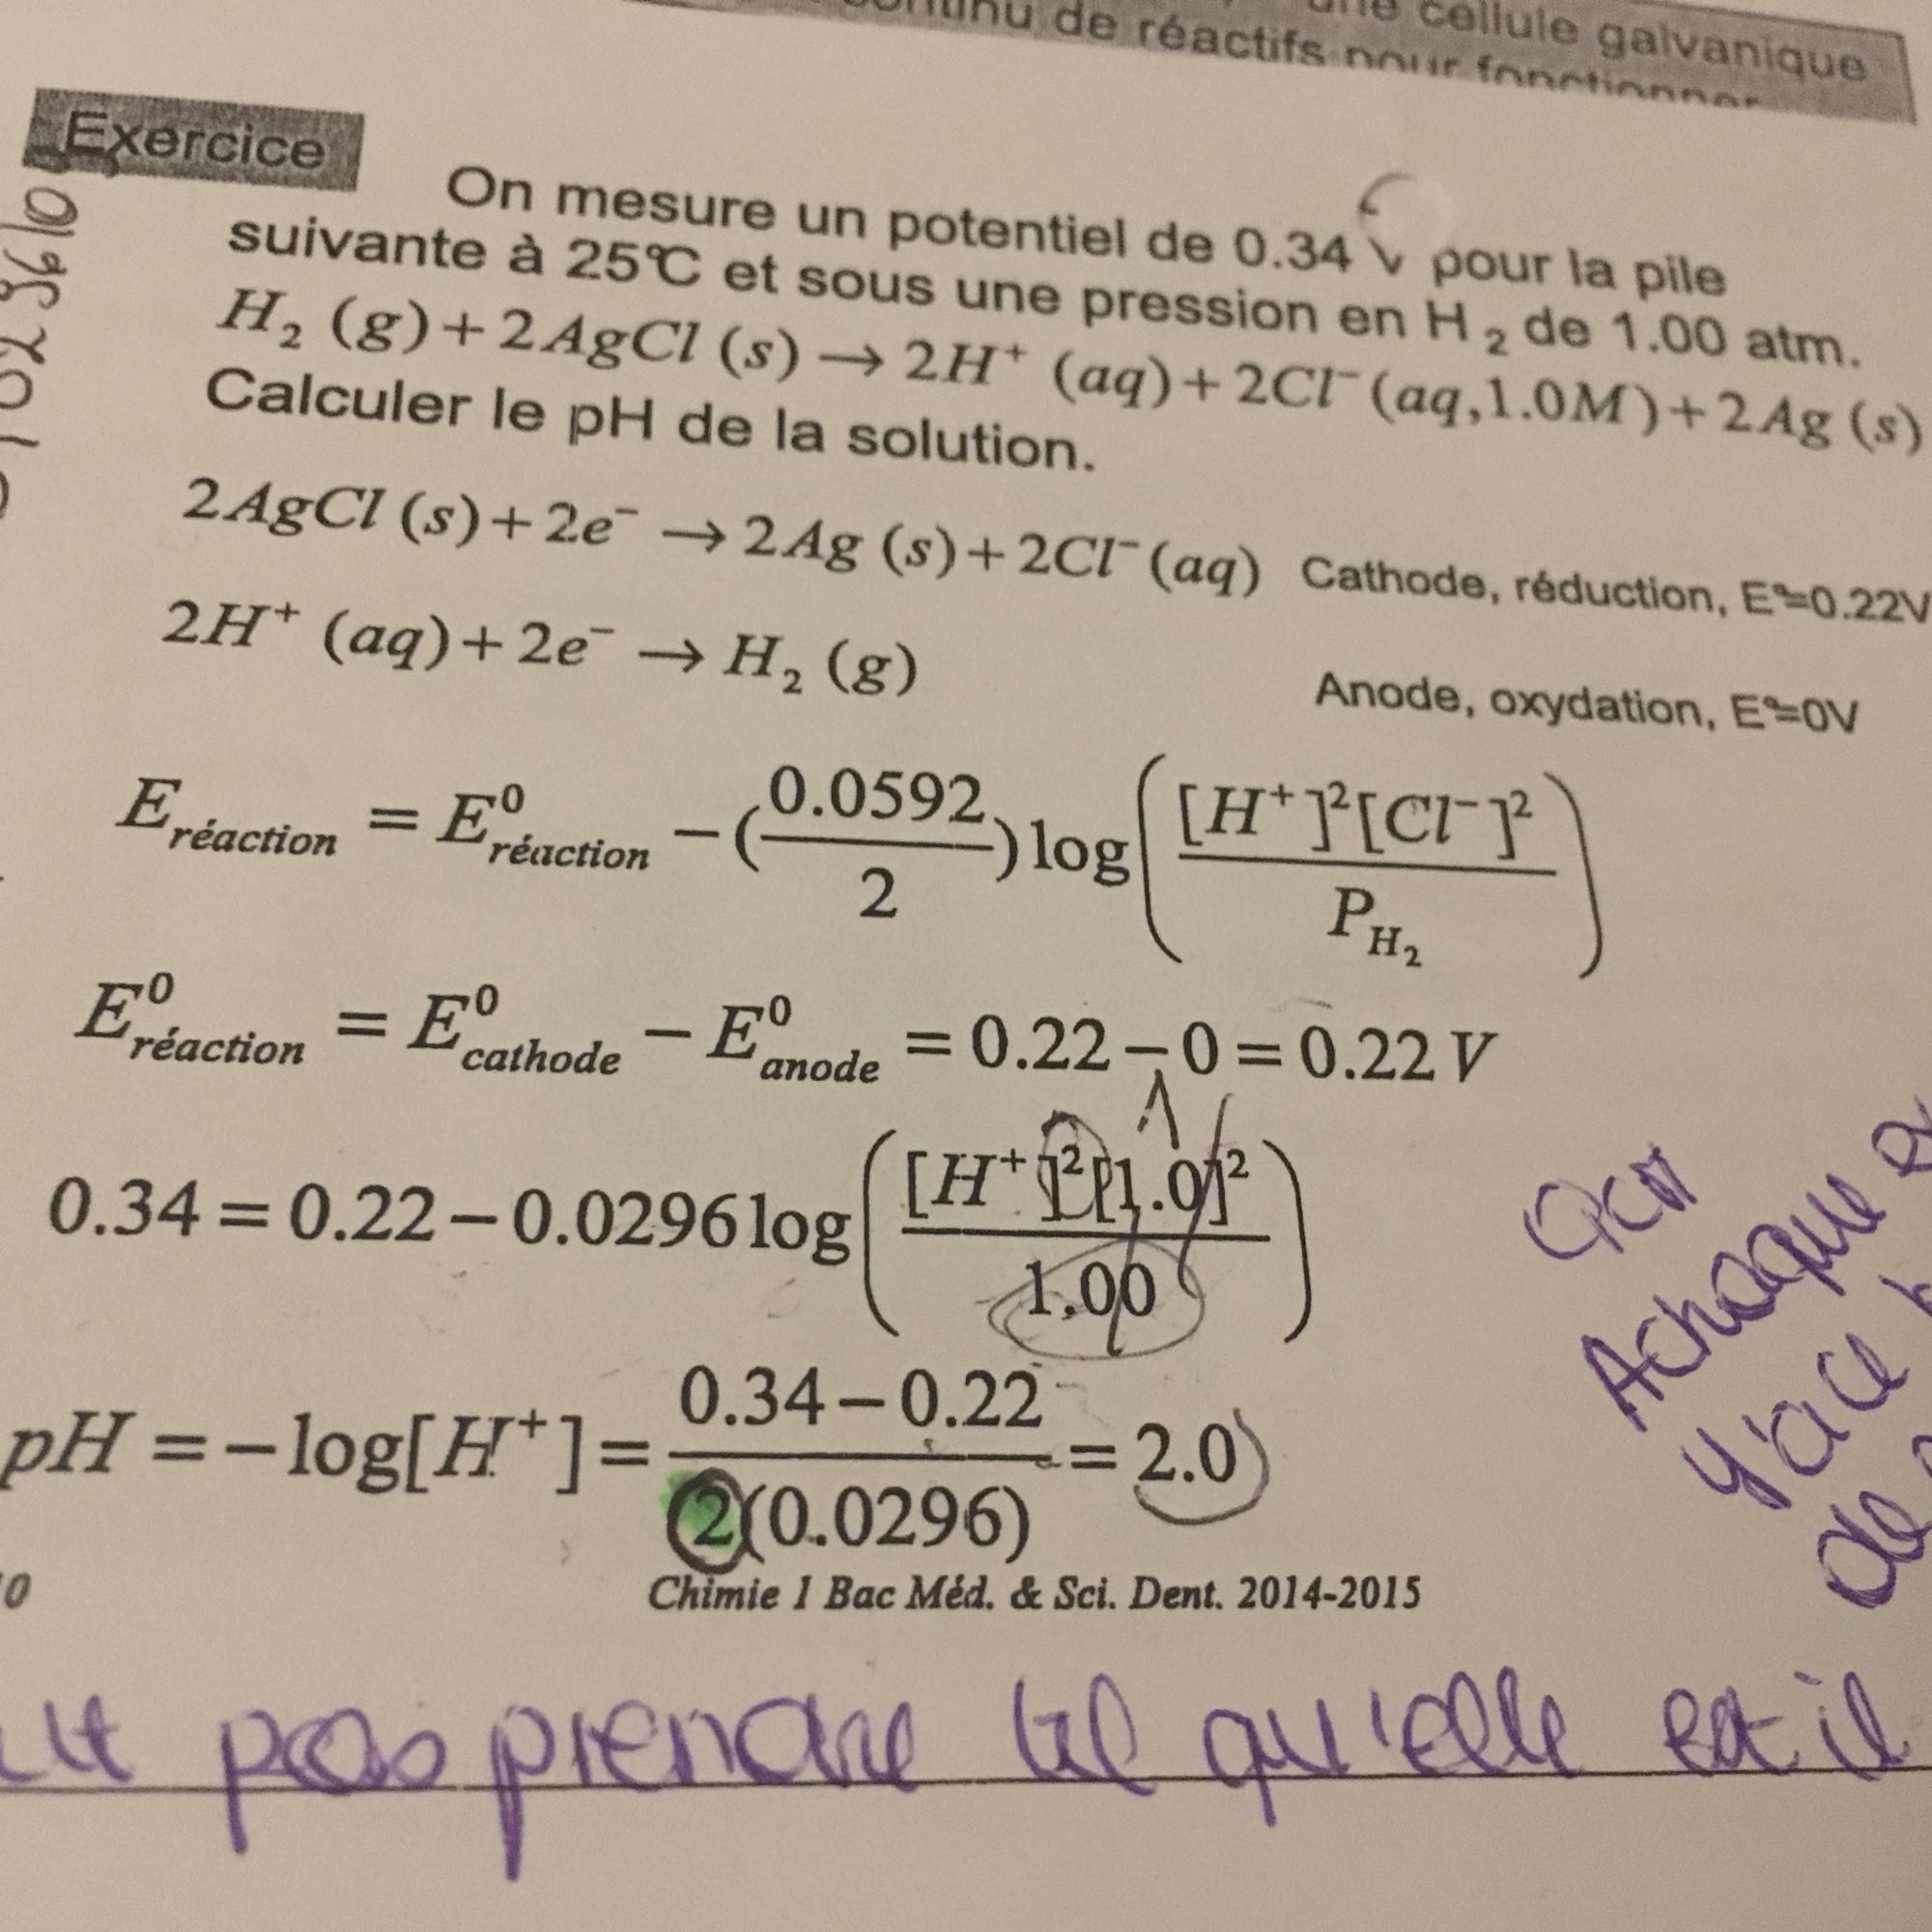 une cellule galvanique
continu de réactifs pour fonctionner
Exercice
On mesure un potentiel de 0.34 V pour la pile
suivante à 25°C et sous une pression en H₂ de 1.00 atm.
H₂ (g) + 2AgCl (s) → 2H⁺ (aq) + 2Cl⁻ (aq, 1.0M) + 2Ag (s)
Calculer le pH de la solution.
2AgCl (s) + 2e⁻ → 2Ag (s) + 2Cl⁻ (aq) Cathode, réduction, E°=0.22V
2H⁺ (aq) + 2e⁻ → H₂ (g) Anode, oxydation, E°=0V
E réaction = E⁰ réaction − (0.0592/2) log([H⁺]²[Cl⁻]²/P H₂)
E⁰ réaction = E⁰ cathode − E⁰ anode = 0.22 − 0 = 0.22 V
0.34 = 0.22 − 0.0296 log([H⁺]²[1.0]²/1.00)
pH = −log[H⁺] = (0.34 − 0.22)/(2(0.0296)) = 2.0
Chimie 1 Bac Méd. & Sci. Dent. 2014-2015
QCM
Achaque
y'a
de
pas prendre tel qu'elle est il